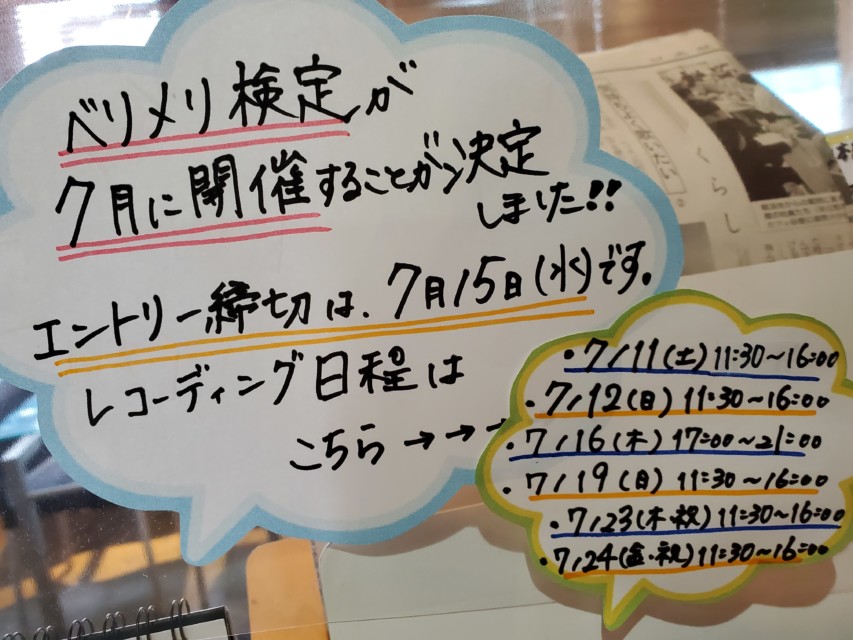 ベリメリ検定が
7月に開催することが決定
しました!!
エントリー締切は、7月15日(水)です。
レコーディング日程は
こちら→→→
・7/11(土)11:30～16:00
・7/12(日)11:30～16:00
・7/16(木)17:00～21:00
・7/19(日)11:30～16:00
・7/23(木・祝)11:30～16:00
・7/24(金・祝)11:30～16:00
くらし